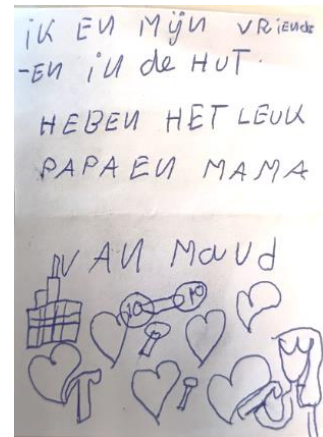 iK EN Mijn VRiENde
-EN iN de HUT.
HEBEN HET LEUK
PAPA EN MAMA
VAN MaUd
10 10